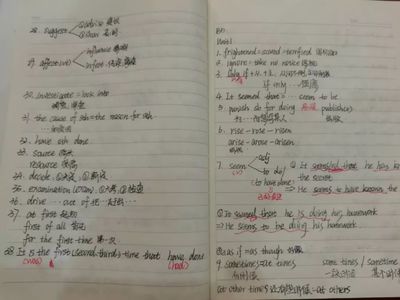 28. suggest ①advise 建议
②show 表明
29. affect(vt) influence 影响
infect 传染,感染
30. investigate = look into
调查
31. the cause of sth = the reason for sth
32. have sth done
33. source 来源
resource 资源
34. decide ①决定 ②断定
35. examination (exam) ①考试 ②检查
36. drive ... out of 把...赶出...
37. at first 起初
first of all 首先
for the first time 第一次
38 It is the first (second.third) time that have done
(was) (had)
Unit 1
1. frightened = scared = terrified
2. ignore = take no notice
3. Only if
if only
4. It seemed that = seem to be
5. punish sb for doing publishers
6. rise - rose - risen
arise - arose - arisen
7. seem adj
(v) to do
(to have done)
① It seemed that he has
the secret
⇒ He seems to have known the
② It seemed that he is doing his homework
⇒ He seems to be doing his homework
as if = as though 好像
9. sometimes = at times some time / sometime
有时候 一段时间
at other times - at others